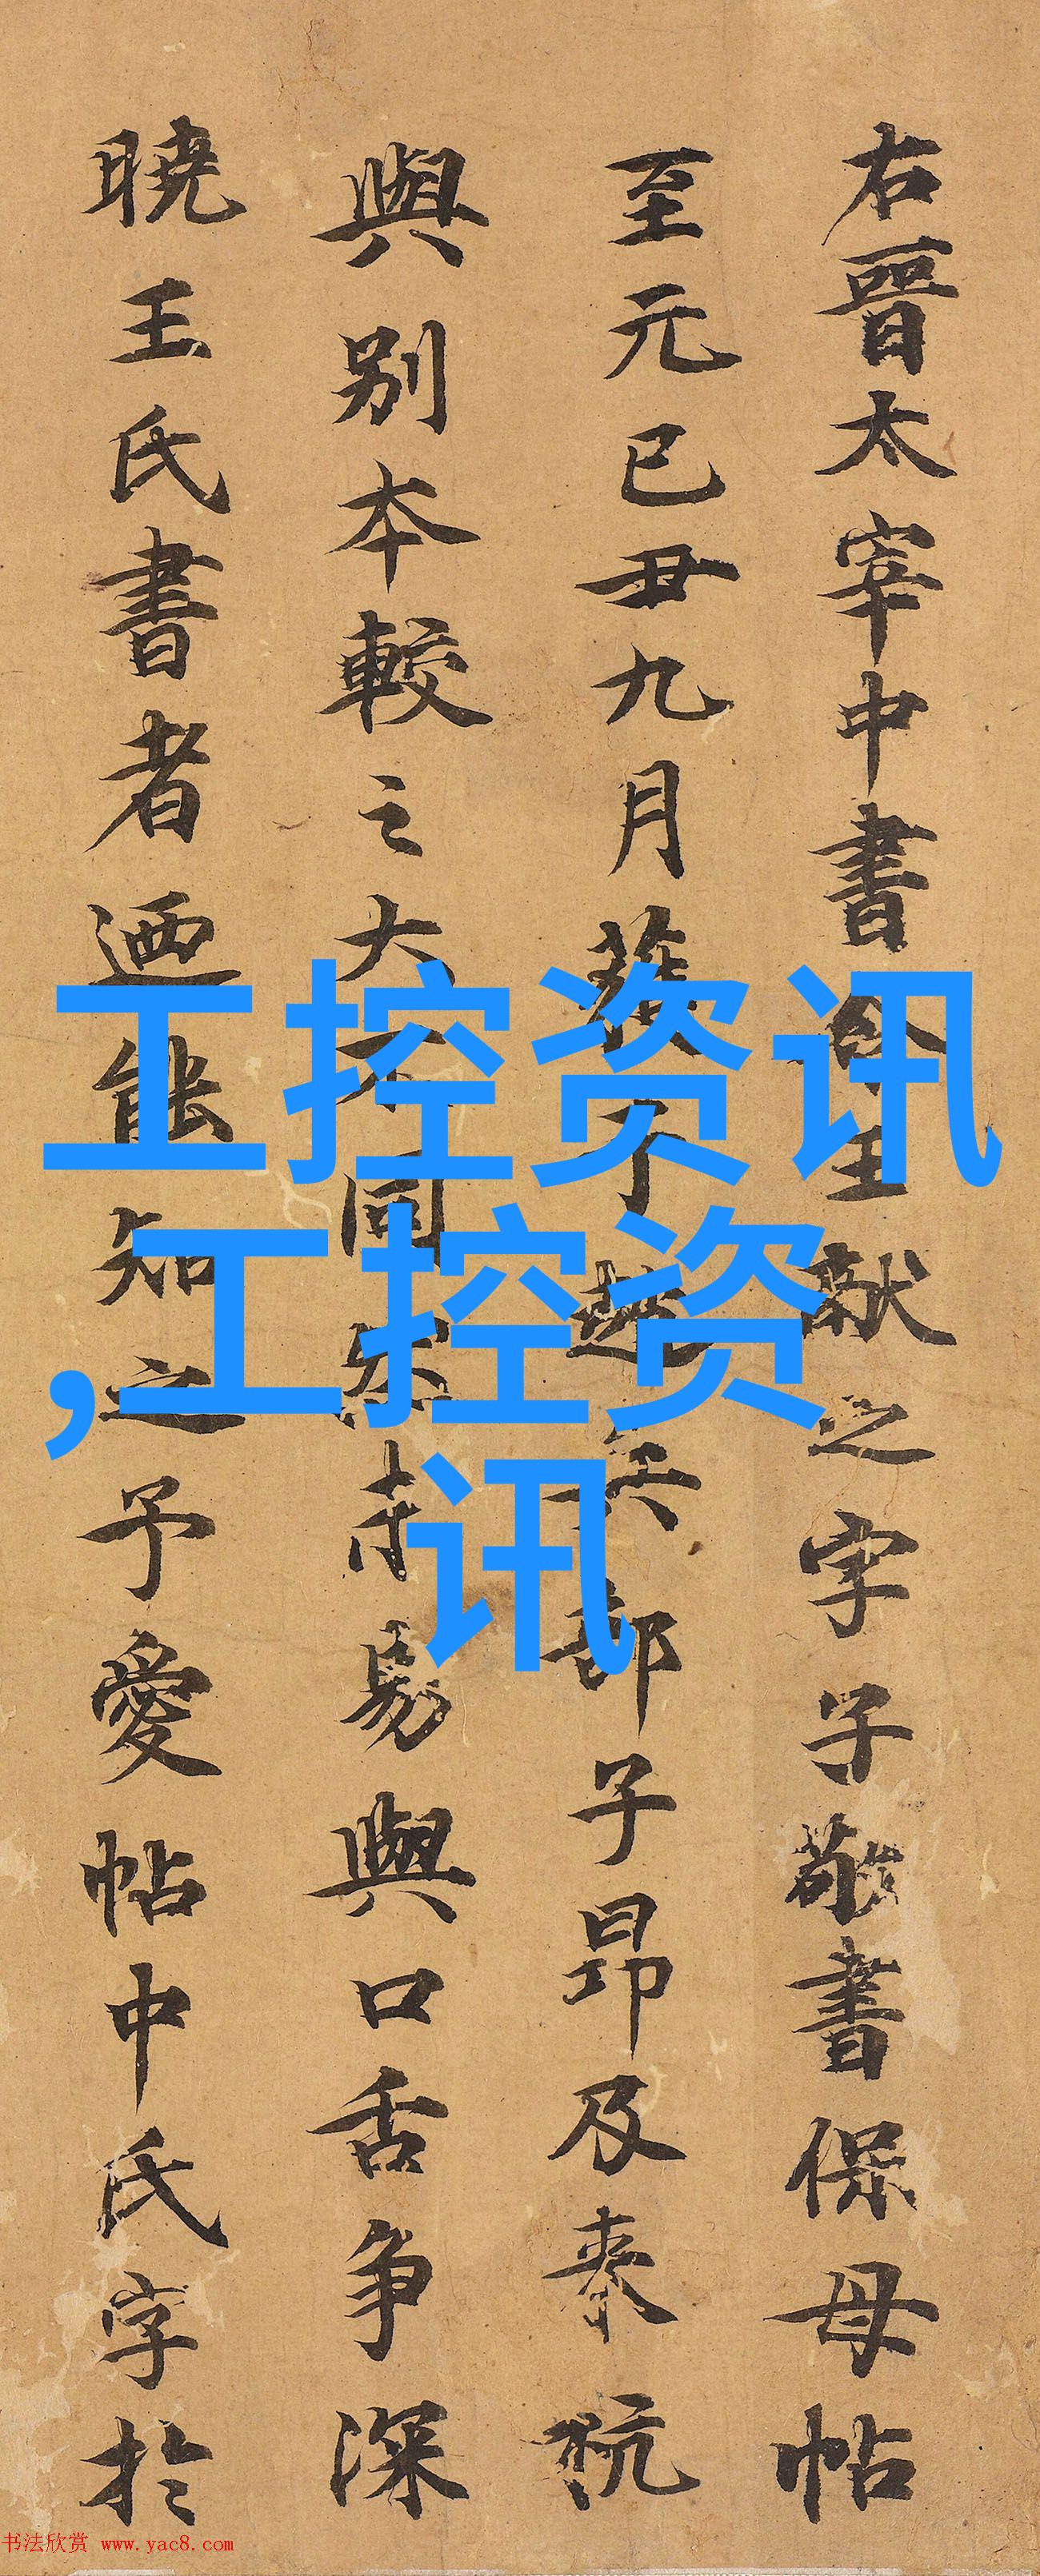 右晉太宰中書令王獻之字子敬書保母帖
至元已丑九月獲于趙兵部子昂及
與别本較之大不同然未易與口舌争深
曉王氏書者迺能知之予愛帖中氏字於
工控资讯
,工控资
讯
书法欣赏 www.yac8.com